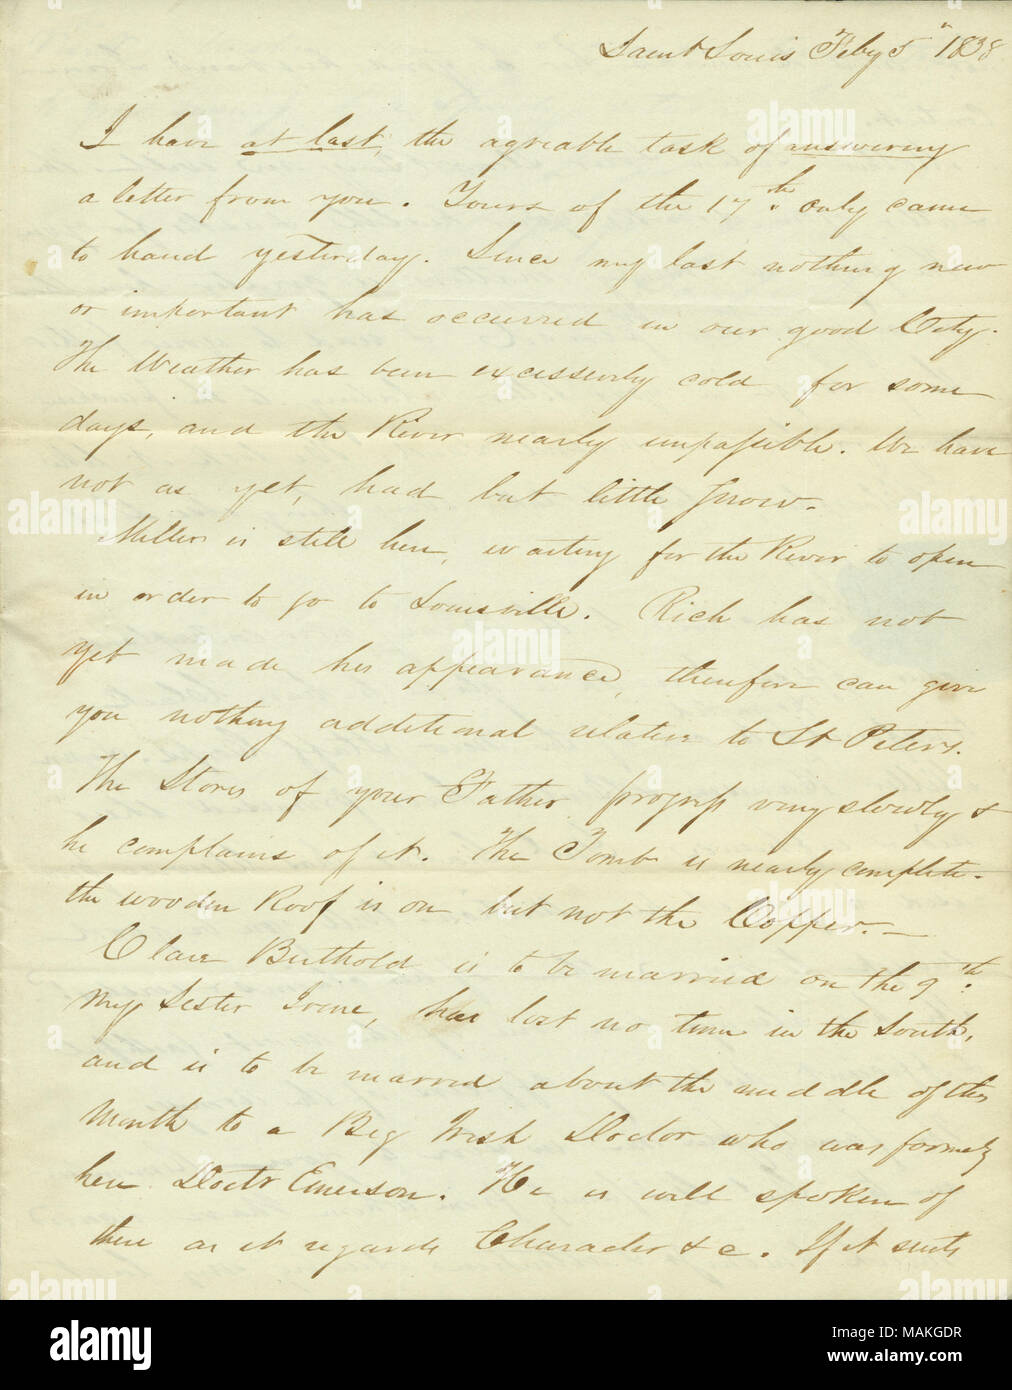 Saint Louis Feby 5" 1838
I have at last, the agreable task of answering
a letter from you. Yours of the 17th. only came
to hand yesterday. Since my last nothing new
or important has occurred in our good City.
The Weather has been excessively cold for some
days, and the River nearly impassible. We have
not as yet, had but little Snow.
Miller is still here, waiting for the River to open
in order to go to Louisville. Rich has not
yet made his appearance, therefore can give
you nothing additional relative to St Peters.
The Stores of your Father progress very slowly &
he complains of it. The Tomb is nearly complete.
the wooden Roof is on but not the Copper.—
Clara Berthold is to be married on the 9th.
My Sister Irine, has lost no time in the South,
and is to be married about the middle of this
Month to a Big Irish Doctor who was formerly
here Doctr Emerson. He is well spoken of
there as it regards Character & c. If it suits
alamy
alamy
alamy
alamy
alamy
alamy
alamy
alamy
alamy
alamy
alamy
alamy
alamy
Image ID: MAKGDR
www.alamy.com